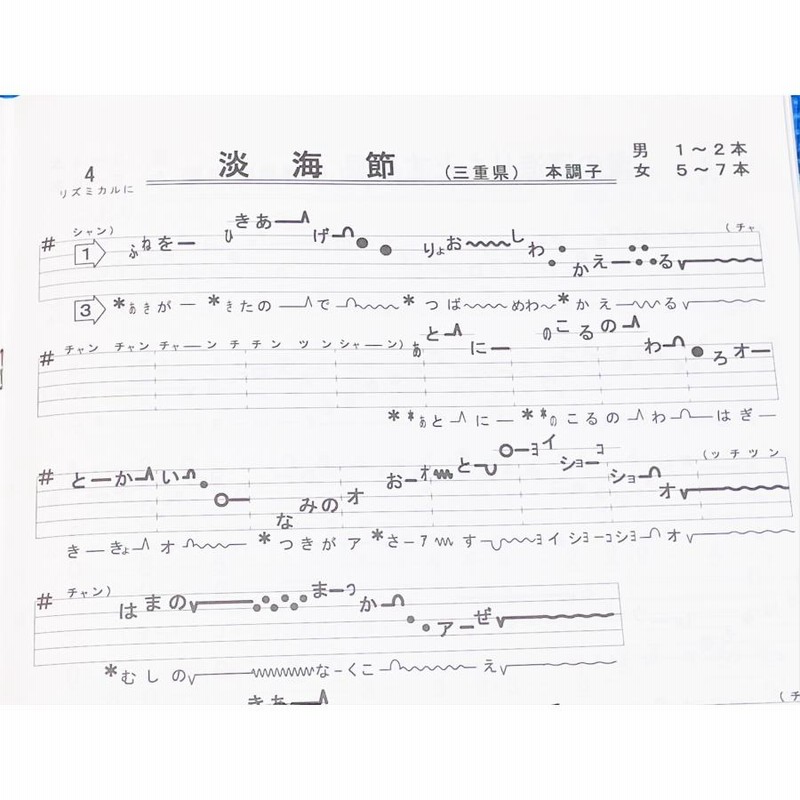 4
リズミカルに
淡海節
(三重県) 本調子
男 1～2本
女 5～7本
シャン)
(チャ
# 1 ふねをー ひきあー げー りょおーし わ かえー る
3 *あきがー *きたのー で *つばーめわ～ *かえー る
チャン チャン チャーン チ チン ツン シャーン)
# あとー にー のこるのー わー ろオー
* *あとー にー * *のこるのー わー はぎー
(ッチツン
# とーかーい なみのオ おーオ とー ○ーヨイ ショーコ ショー オ
きーきょーオ *つきがア *さーア すーヨイ ショーコショー オ
チャン)
# はまの まーっ かー アーぜ
*むしの なーくこー え
きあー
(チ